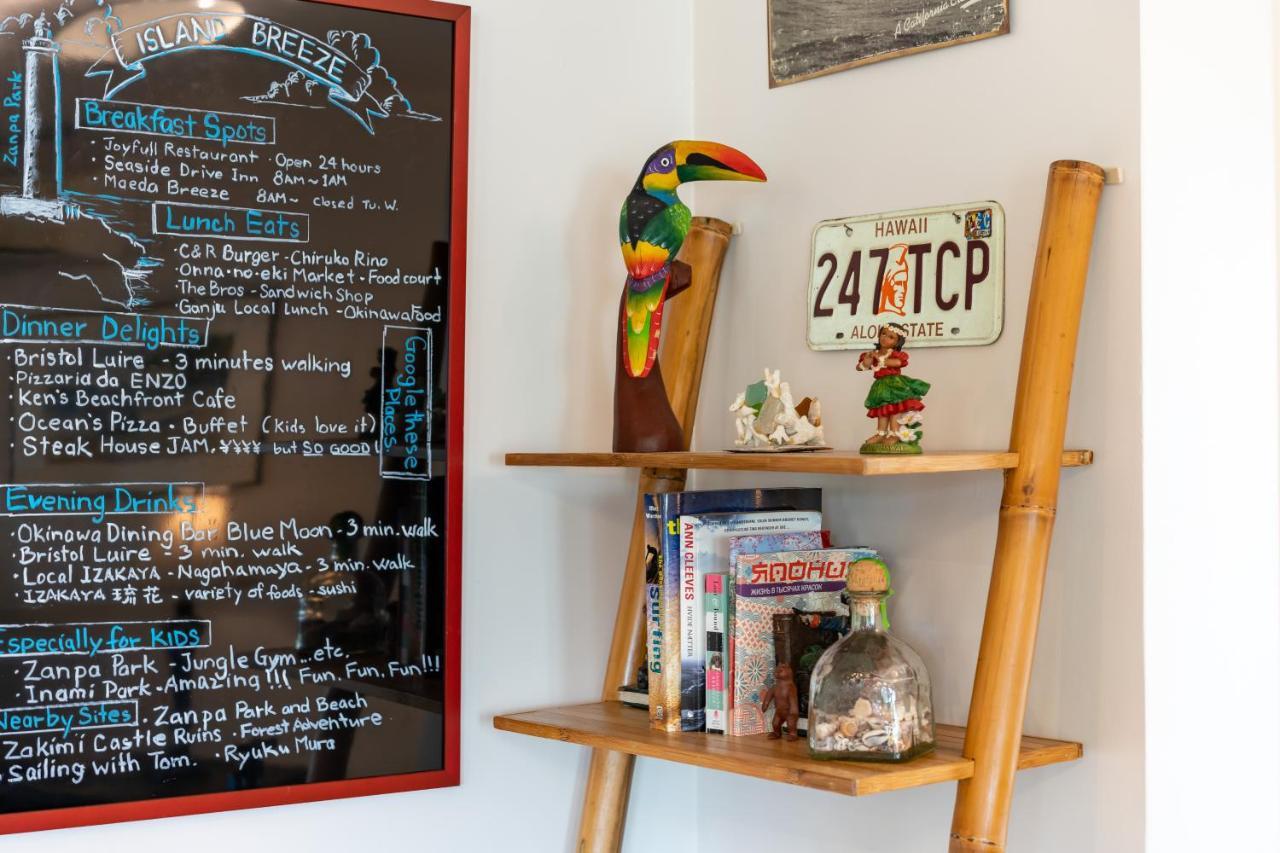 ISLAND BREEZE
Zanpa Park
Breakfast Spots
· Joyfull Restaurant · Open 24 hours
· Seaside Drive Inn 8AM~1AM
· Maeda Breeze 8AM~ closed Tu. W.
Lunch Eats
· C&R Burger - Chiruko Rino
· Onna-no-eki Market - Food court
· The Bros - Sandwich Shop
· Ganju Local Lunch - Okinawa Food
Dinner Delights
· Bristol Luire - 3 minutes walking
· Pizzaria da ENZO
· Ken's Beachfront Cafe
· Ocean's Pizza - Buffet (kids love it)
· Steak House JAM. ¥¥¥¥ but SO GOOD!
Google these
Places.
Evening Drinks
· Okinawa Dining Bar Blue Moon - 3 min. walk
· Bristol Luire - 3 min. walk
· Local IZAKAYA - Nagahamaya - 3 min. walk
· IZAKAYA 琉花 - variety of foods - sushi
Especially for KIDS
· Zanpa Park - Jungle Gym...etc.
· Inami Park - Amazing!!! Fun. Fun. Fun!!!
Nearby Sites · Zanpa Park and Beach
· Zakimi Castle Ruins · Forest Adventure
· Sailing with Tom. · Ryuku Mura
A California
HAWAII
247 TCP
ALOHA STATE
surfing
ANN CLEEVES
HVIDE NÆTTER
ЖИЗНЬ В ТЫСЯЧАХ КРАСОК